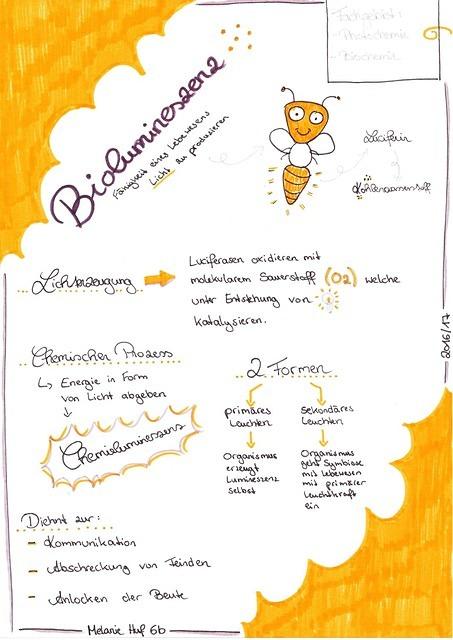 Fachgebiet:
- Photochemie
- Biochemie
Biolumineszenz
Fähigkeit eines Lebewesens
Licht zu produzieren
Luciferin
Lichterzeugung
Luciferasen oxidieren mit
molekularem Sauerstoff (O2) welche
unter Entstehung von
katalysieren.
Chemischer Prozess
Energie in Form
von Licht abgeben
Chemielumineszens
2 Formen
primäres
Leuchten
Organismus
erzeugt
Lumineszenz
selbst
sekundäres
Leuchten
Organismus
geht Symbiose
mit Lebewesen
mit primärer
Leuchtkraft
ein
Diehnt zur:
- Kommunikation
- Abschreckung von Feinden
- Anlocken der Beute
2016/17
Melanie Huf 6b